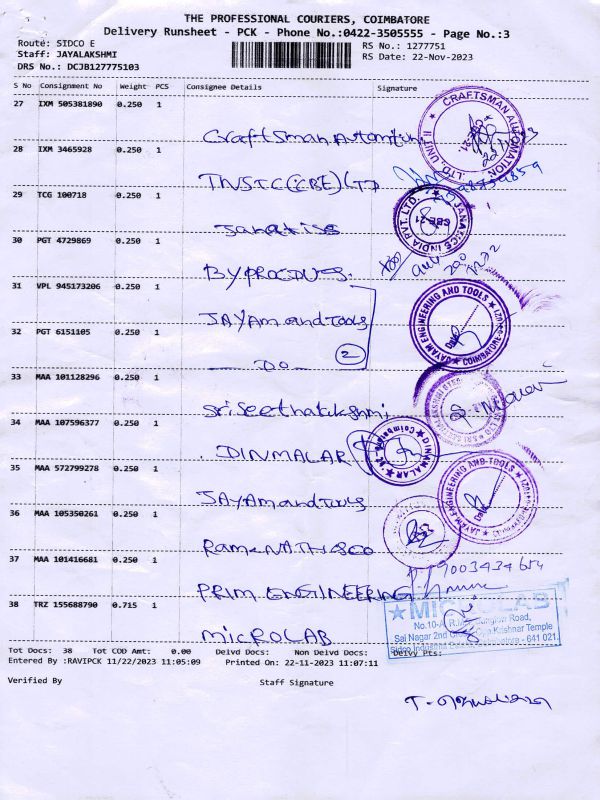 THE PROFESSIONAL COURIERS, COIMBATORE
Delivery Runsheet - PCK - Phone No.:0422-3505555 - Page No.:3
Route: SIDCO E
RS No.: 1277751
Staff: JAYALAKSHMI
RS Date: 22-Nov-2023
DRS No.: DCJB127775103
S No Consignment No Weight PCS Consignee Details Signature
27 IXM 505381890 0.250 1
Craftsman Automation
CRAFTSMAN AUTOMATION LTD. UNIT II
28 IXM 3465928 0.250 1
29 TCG 100718 0.250 1
JANATICS INDIA PVT. LTD.
CBE-21
30 PGT 4729869 0.250 1
31 VPL 945173206 0.250 1
JAYAM and Tools
JAYAM ENGINEERING AND TOOLS
COIMBATORE
32 PGT 6151105 0.250 1
DO
2
33 MAA 101128296 0.250 1
34 MAA 107596377 0.250 1
DINMALAR
DINAMALAR
Coimbatore
35 MAA 572799278 0.250 1
JAYAM and Tools
JAYAM ENGINEERING AND TOOLS
36 MAA 105350261 0.250 1
37 MAA 101416681 0.250 1
9003434654
PRIM ENGINEERING
38 TRZ 155688790 0.715 1
MICROLAB
MICROLAB
Sai Nagar 2nd Krishnar Temple
Coimbatore - 641 021.
Tot Docs: 38 Tot COD Amt: 0.00 Delvd Docs: Non Delvd Docs: Delvy Pts:
Entered By :RAVIPCK 11/22/2023 11:05:09 Printed On: 22-11-2023 11:07:11
Verified By Staff Signature